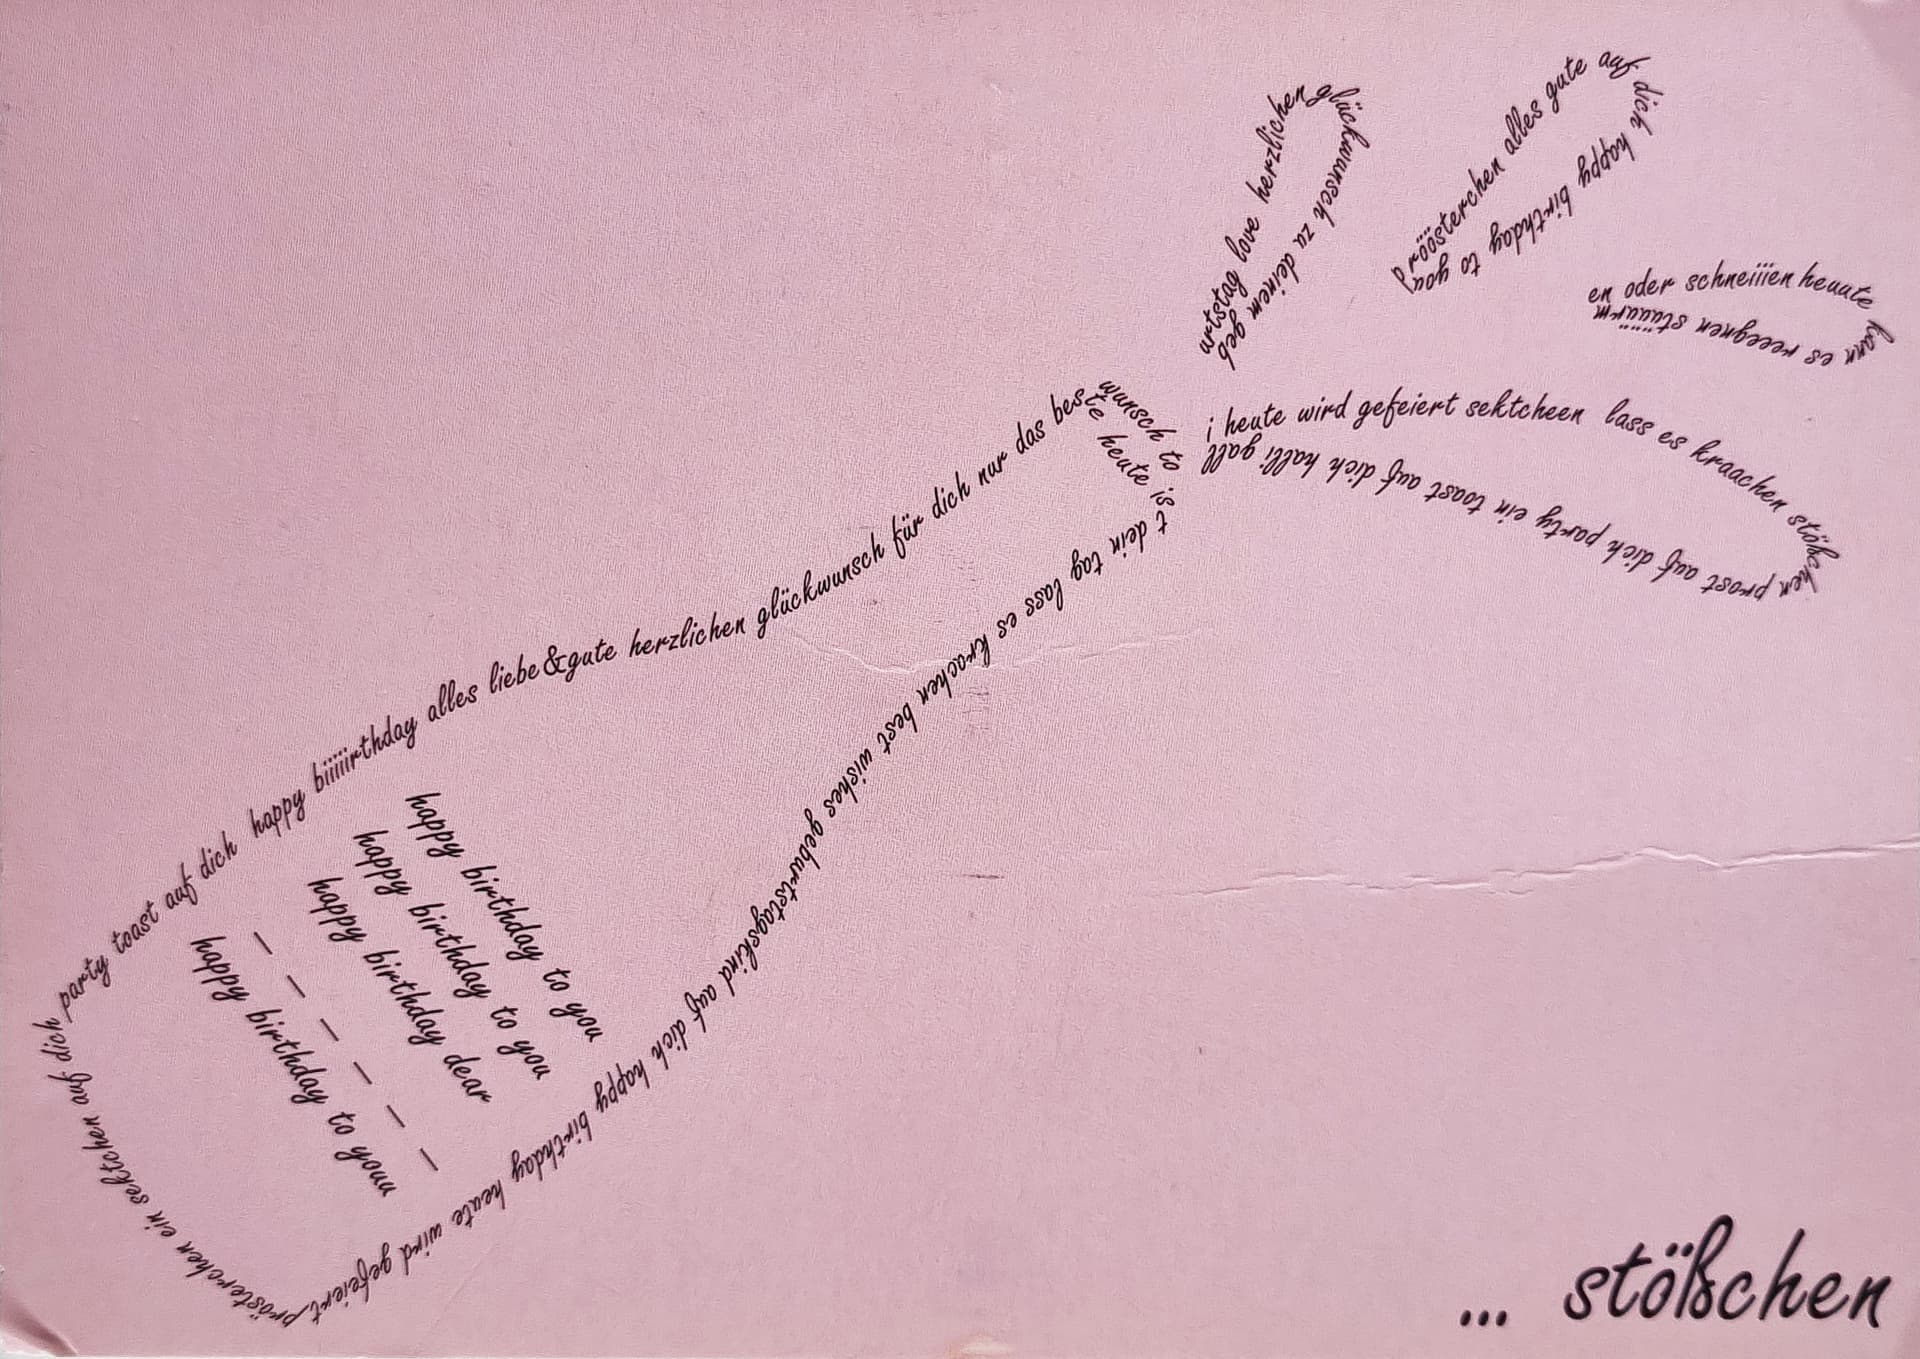 party toast auf dich happy biiiiirthday alles liebe&gute herzlichen glückwunsch für dich nur das beste heute ist dein tag lass es krachen best wishes geburtstagskind auf dich happy birthday heute wird gefeiert prösterchen ein sektchen auf dich
wunsch to
happy birthday to you
happy birthday to you
happy birthday dear
_ _ _ _ _ _
happy birthday to youu
urtstag love herzlichen glückwunsch zu deinem geb
pröööosterchen alles gute auf dich happy birthday to you
en oder schneiiien heuute kann es reeegnen stüüürm
i heute wird gefeiert sektcheen lass es kraachen stößchen prost auf dich party ein toast auf dich halli gall
... stößchen